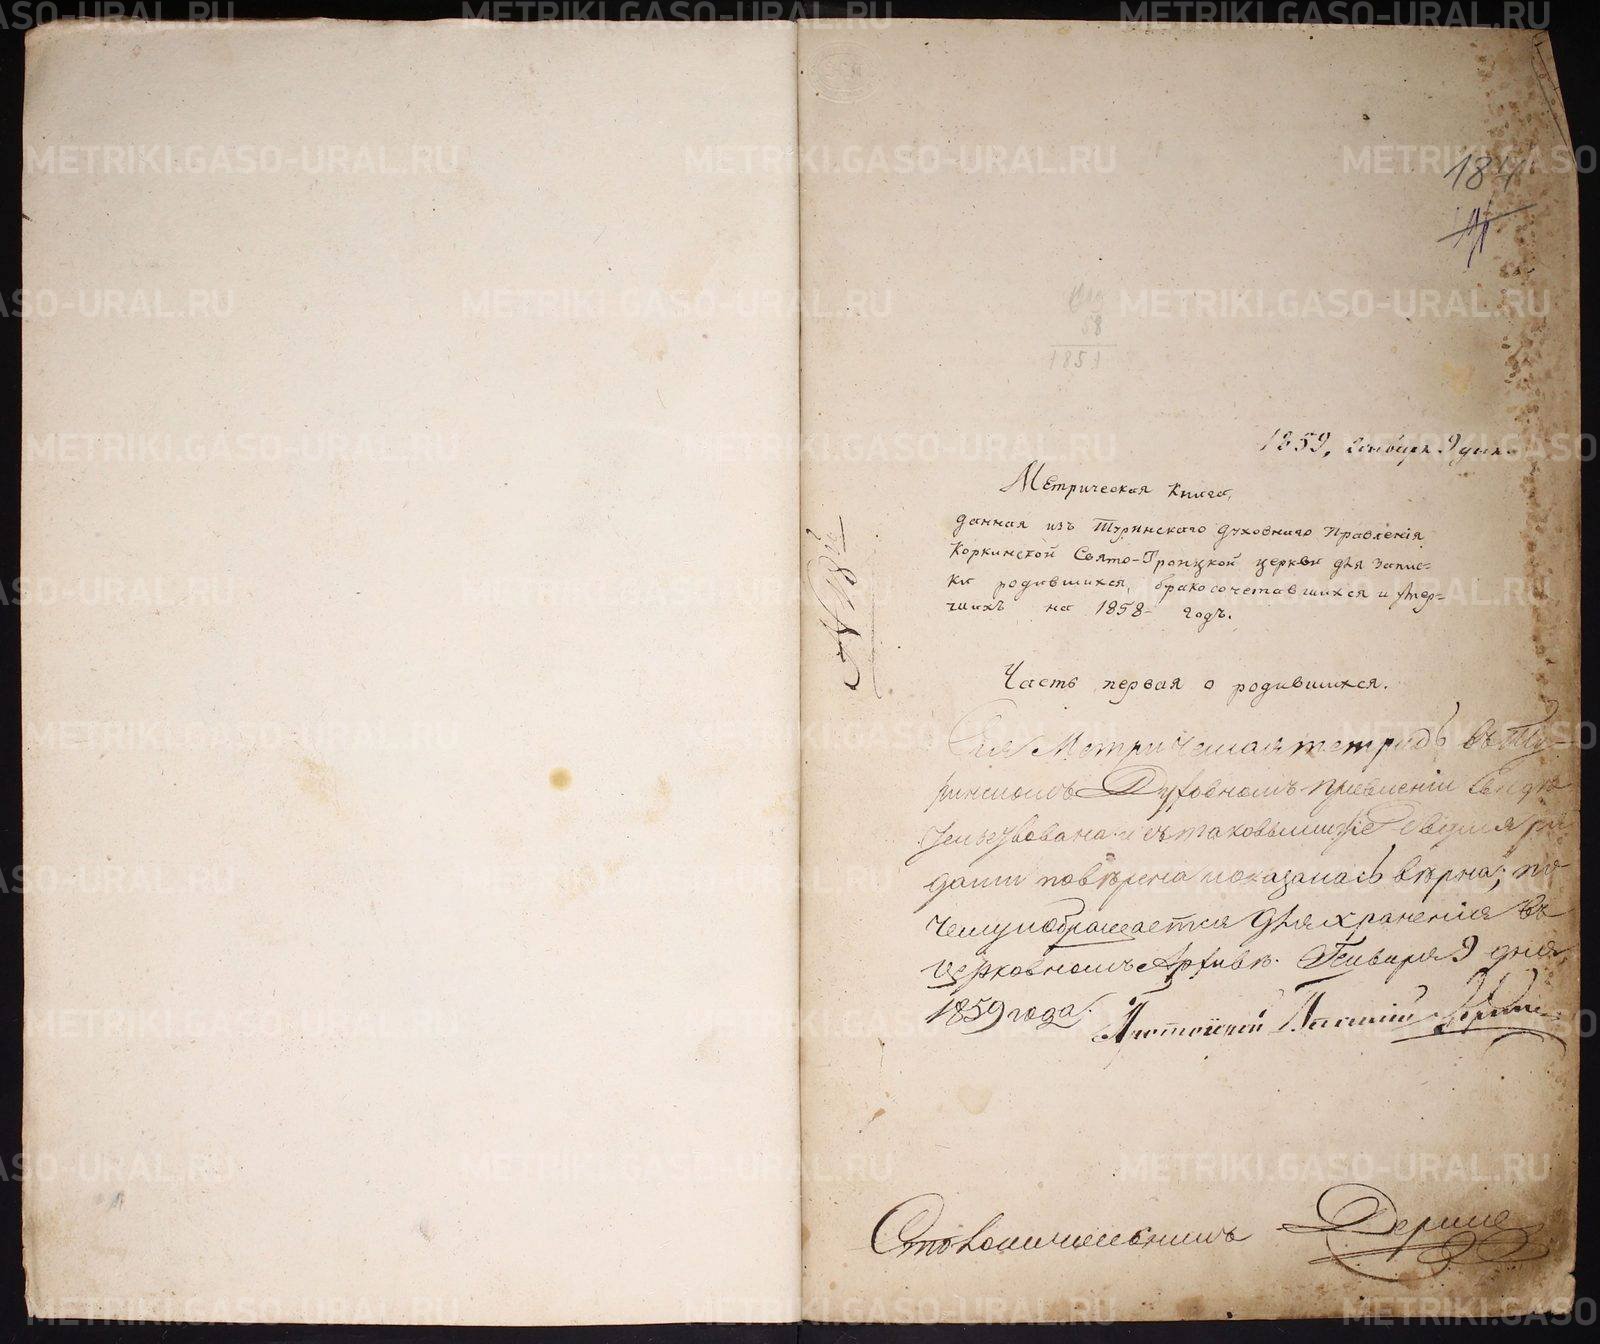 184
58
1851
1859, Генваря 9 дня.
Метрическая Книга,
данная изъ Туринскаго Духовнаго Правленія
Коркинской Свято-Троицкой церкви для запис=
ки родившихся, бракосочетавшихся и умер=
шихъ на 1858- годъ.
Часть первая о родившихся.
Сія Метрическая тетрадь въ Ту-
ринскомъ Духовномъ правленіи свидѣ
тельствована и съ таковыми же
дами повѣрена и оказалась вѣрна; по-
чему и обращается для храненія въ
церковномъ Архивѣ. Генваря 9 дня
1859 года.
Столоначальникъ
METRIKI.GASO-URAL.RU